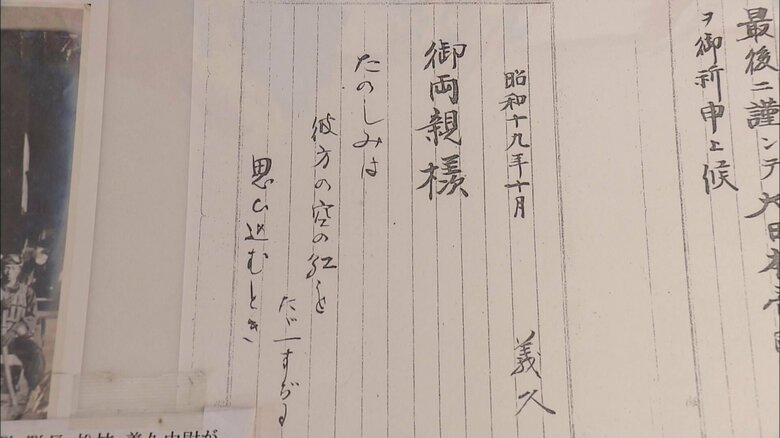 最後ニ謹ンデ大日本帝国
ヲ御祈申上候
昭和十九年十月
義久
御両親様
たのしみは
彼方の空の紅を
たゞ一すぢに
思ひ込むとき